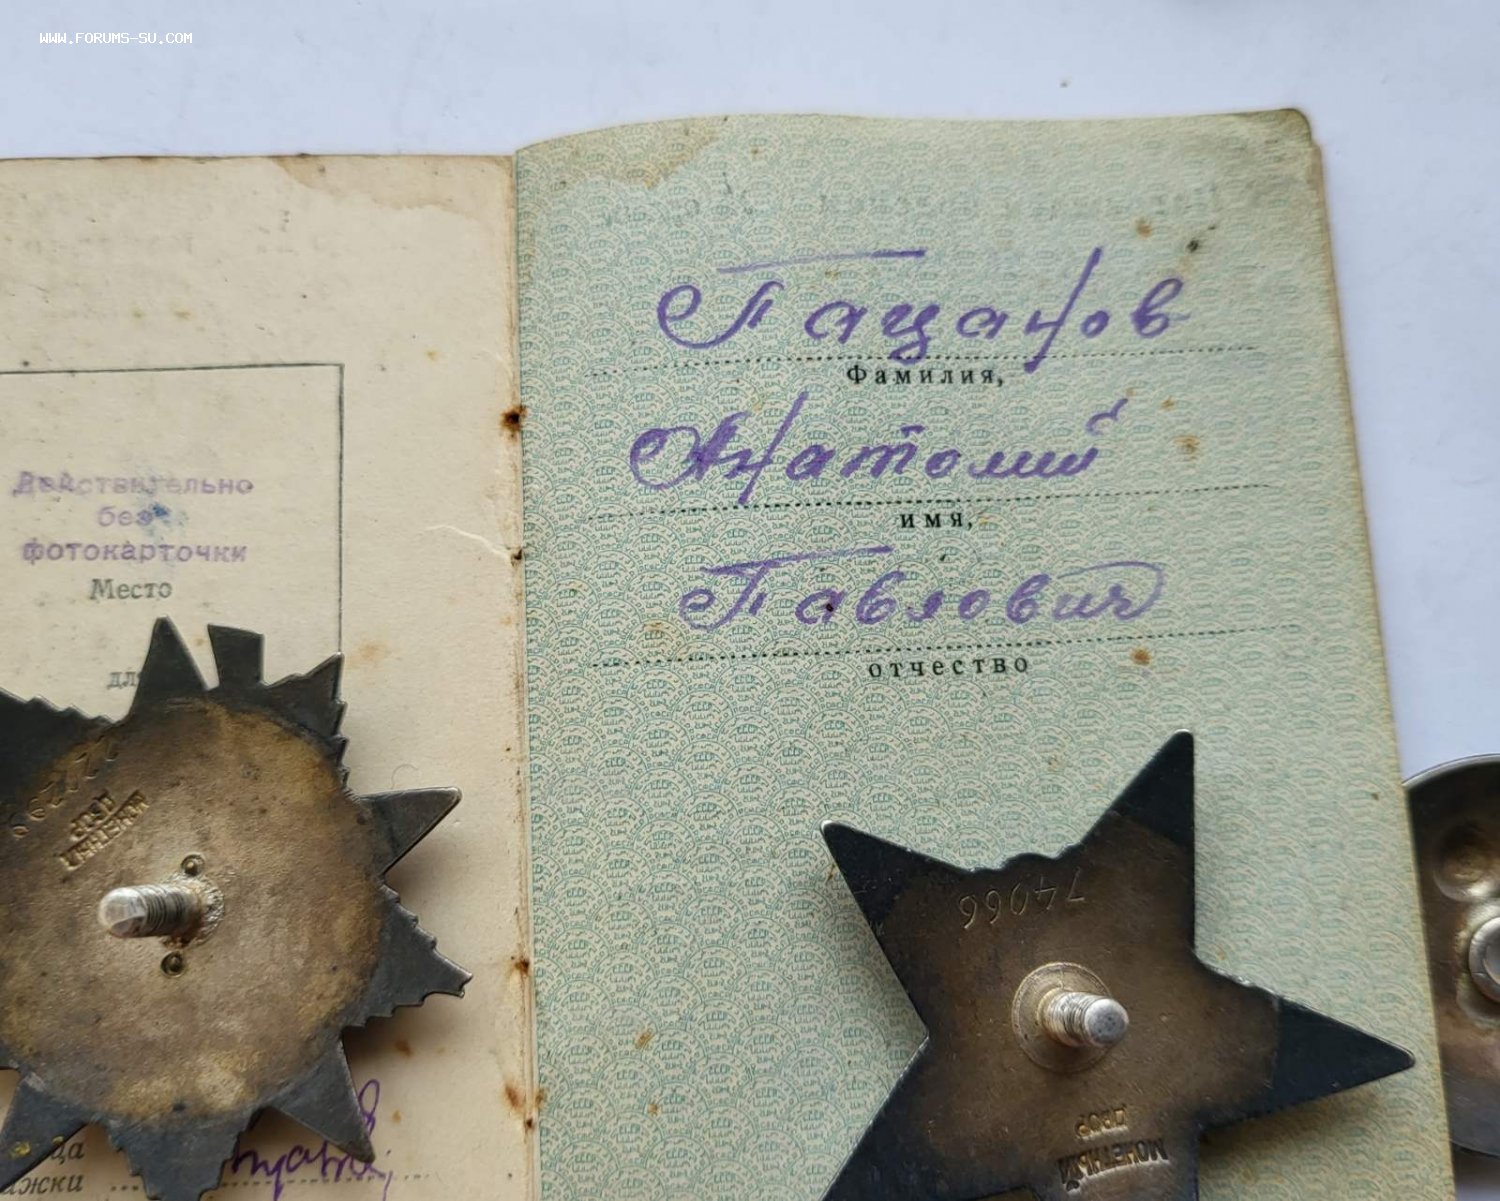 WWW.FORUMS-SU.COM
Действительно
без
фотокарточки
Место
Пацанов
Фамилия,
Анатолий
имя,
Павлович
отчество
МОНЕТНЫЙ
ДВОР
74066
МОНЕТНЫЙ
ДВОР